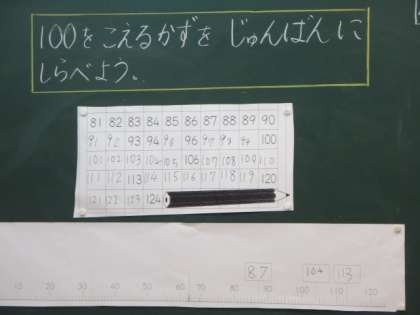 100をこえるかずを じゅんばんに
しらべよう。
81 82 83 84 85 86 87 88 89 90
91 92 93 94 95 96 97 98 99 100
101 102 103 104 105 106 107 108 109 110
111 112 113 114 115 116 117 118 119 120
121 122 123 124
87 104 113
10 20 30 40 50 60 70 80 90 100 110 120